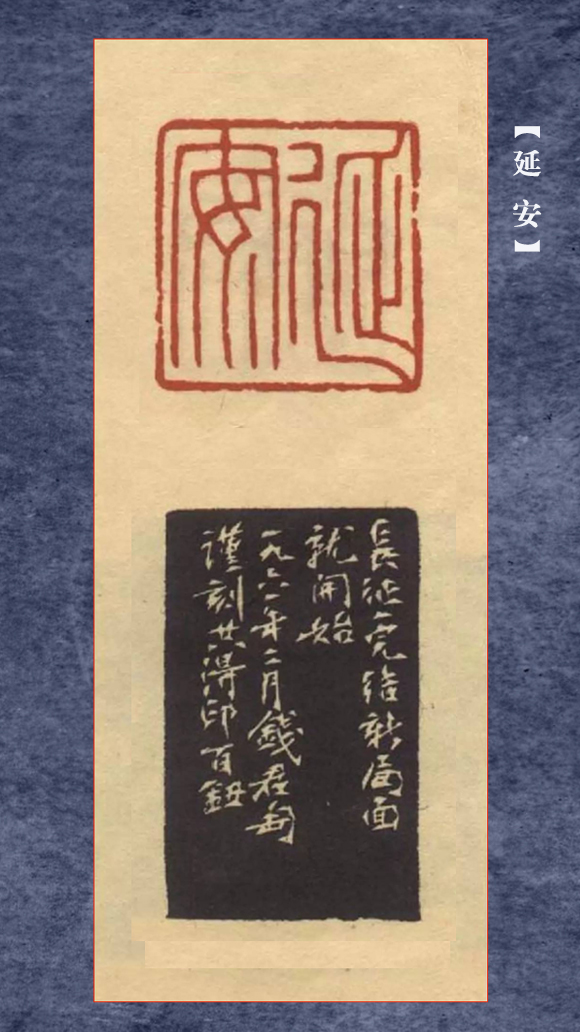 【延安】
延安
長征一完結新局面
就開始
一九六一年二月錢君匋
謹刻共得印百鈕